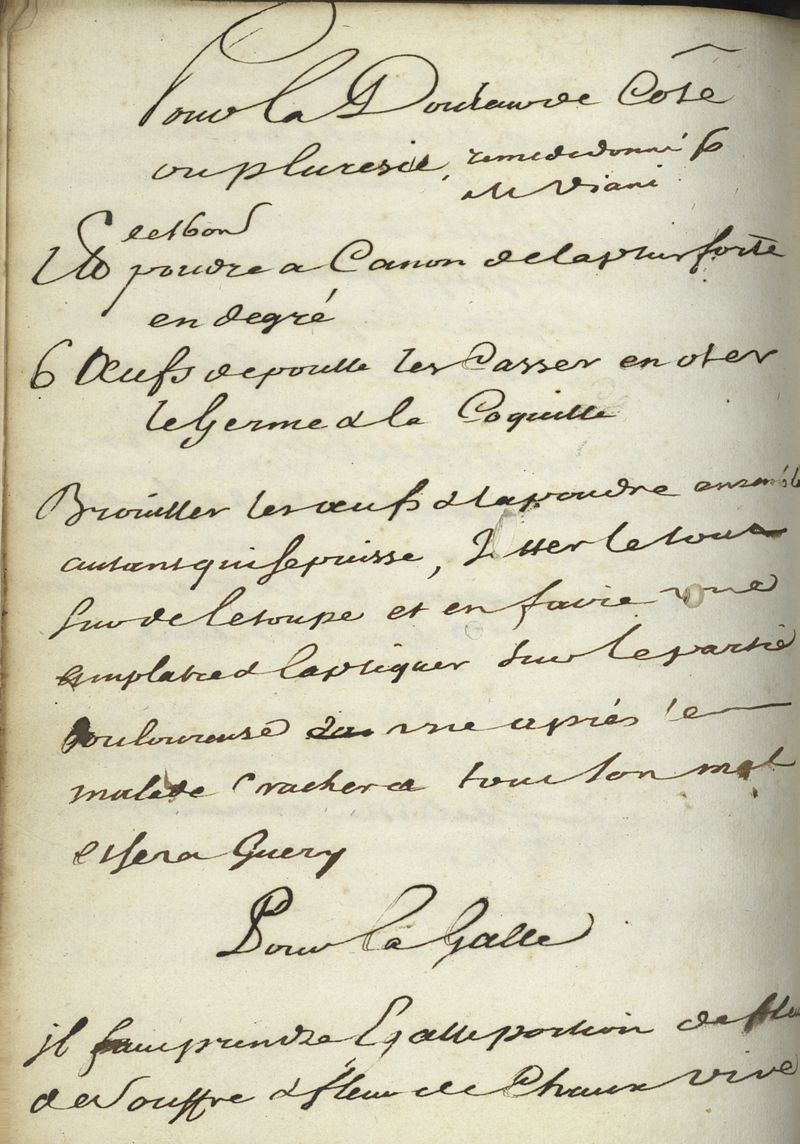 Pour la Douleur de Côté
ou pluresie, remede donné p
Mr Viani
et bon
poudre a Canon de la plus forte
en degré
6 Œufs de poulle les Casser en oter
le Germe & la Coquille
Brouiller les œufs & la poudre ensemble
autant qui se puisse, Jtter le tout
sur de letoupe et en faire une
amplatre & l'apliquer sur le partie
douloureuse une aprés le
malade Crachera tout son mal
et sera Guery
Pour la Galle
jl faut prendre Egalle portion de fleur
de Souffre & fleur de Chaux vive